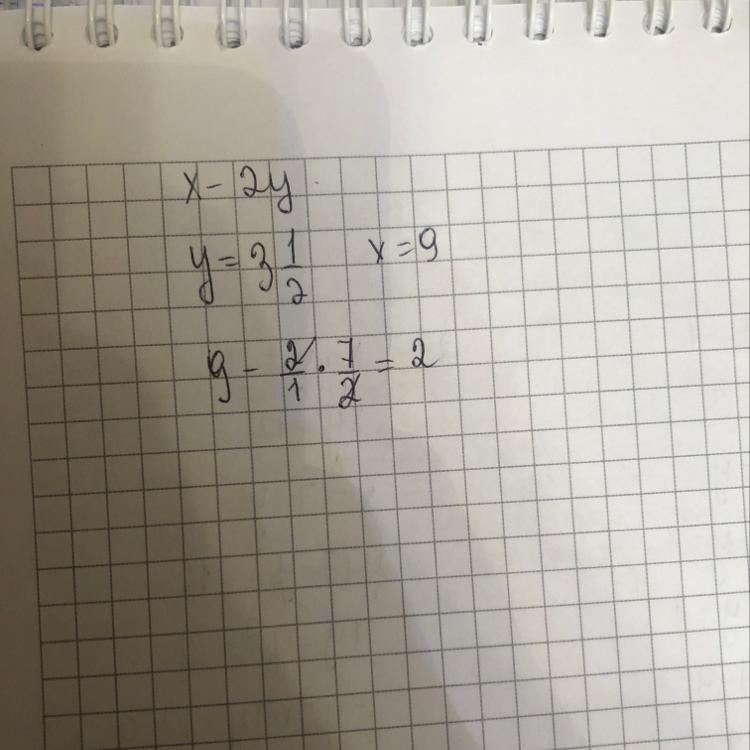 x - 2y
y = 3 1/2 x = 9
9 - 2/1 · 7/2 = 2